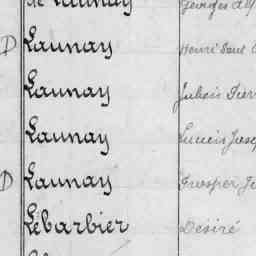 de Launay Georges
D Launay Henri Paul
Launay Jules
Launay Lucien
D Launay Prosper
Lébarbier Désiré